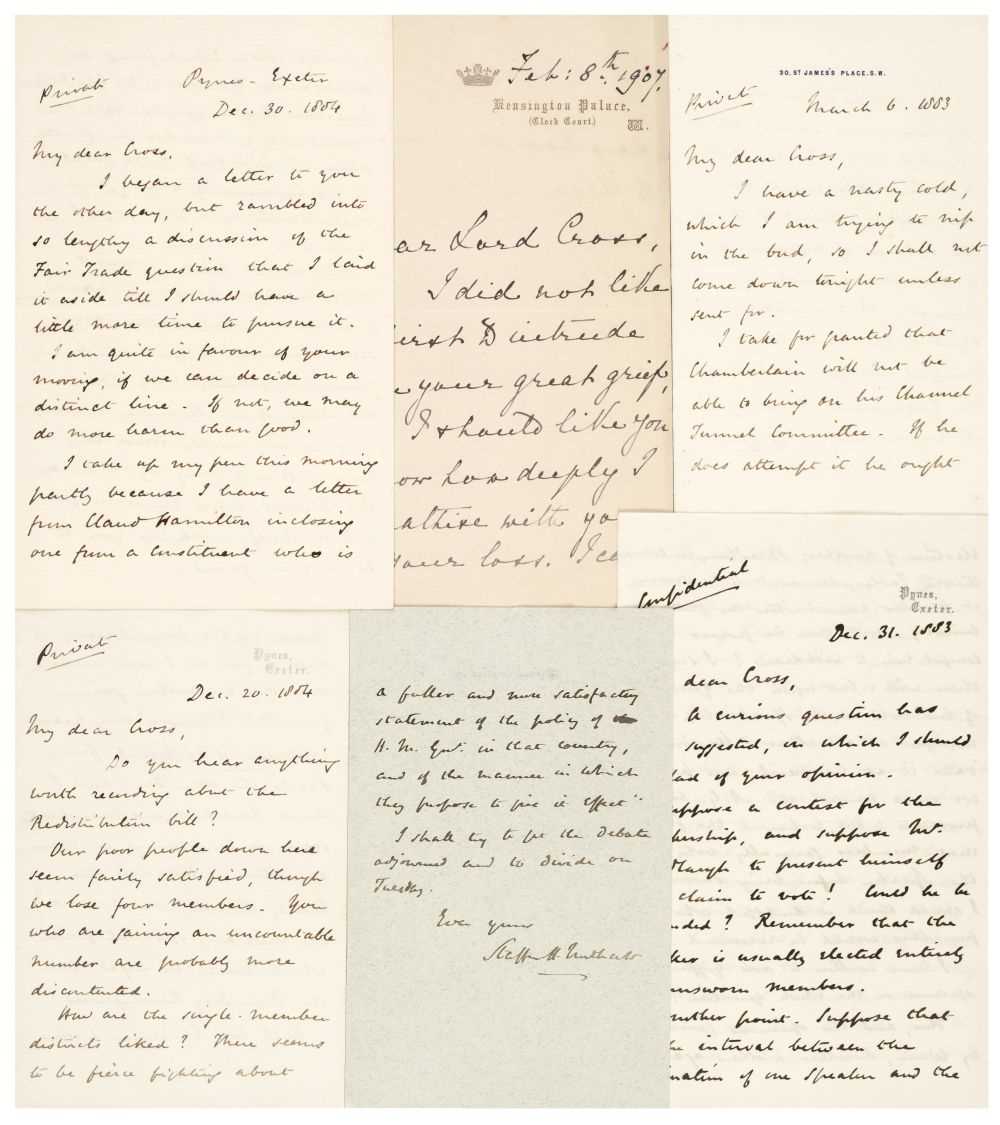 Private
Pynes - Exeter
Dec. 30. 1884
My dear Cross,
I began a letter to you
the other day, but rambled into
so lengthy a discussion of the
Fair Trade question that I laid
it aside till I should have a
little more time to pursue it.
I am quite in favour of your
moving, if we can decide on a
distinct line. If not, we may
do more harm than good.
I take up my pen this morning
partly because I have a letter
from Claud Hamilton inclosing
one from a constituent who is
Feb: 8th. 1907.
Kensington Palace,
(Clock Court)
W.
ar Lord Cross,
I did not like
irst to intrude
your great grief,
I should like you
ow how deeply I
athise with yo
your loss. I ca
30, ST JAMES'S PLACE. S.W.
Private
March 6. 1883
My dear Cross,
I have a nasty cold,
which I am trying to nip
in the bud, so I shall not
come down tonight unless
sent for.
I take for granted that
Chamberlain will not be
able to bring on his Channel
Tunnel Committee. If he
does attempt it he ought
Private
Pynes,
Exeter.
Dec. 20. 1884
My dear Cross,
Do you hear anything
worth recording about the
Redistribution bill?
Our poor people down here
seem fairly satisfied, though
we lose four members. You
who are gaining an uncountable
number are probably more
discontented.
How are the single-member
districts liked? There seems
to be fierce fighting about
a fuller and more satisfactory
statement of the policy of
H. M. Govt. in that country,
and of the manner in which
they propose to give it effect"
I shall try to get the Debate
adjourned and to divide on
Tuesday.
Ever yours
Stafford H. Northcote
Confidential
Pynes,
Exeter.
Dec. 31. 1883
dear Cross,
A curious question has
suggested, on which I should
lad of your opinion.
uppose a contest for the
kership, and suppose Mr.
dlaugh to present himself
claim to vote! Could he be
nded? Remember that the
ker is usually elected entirely
unsworn members.
nother point. Suppose that
he interval between the
nation of one Speaker and the